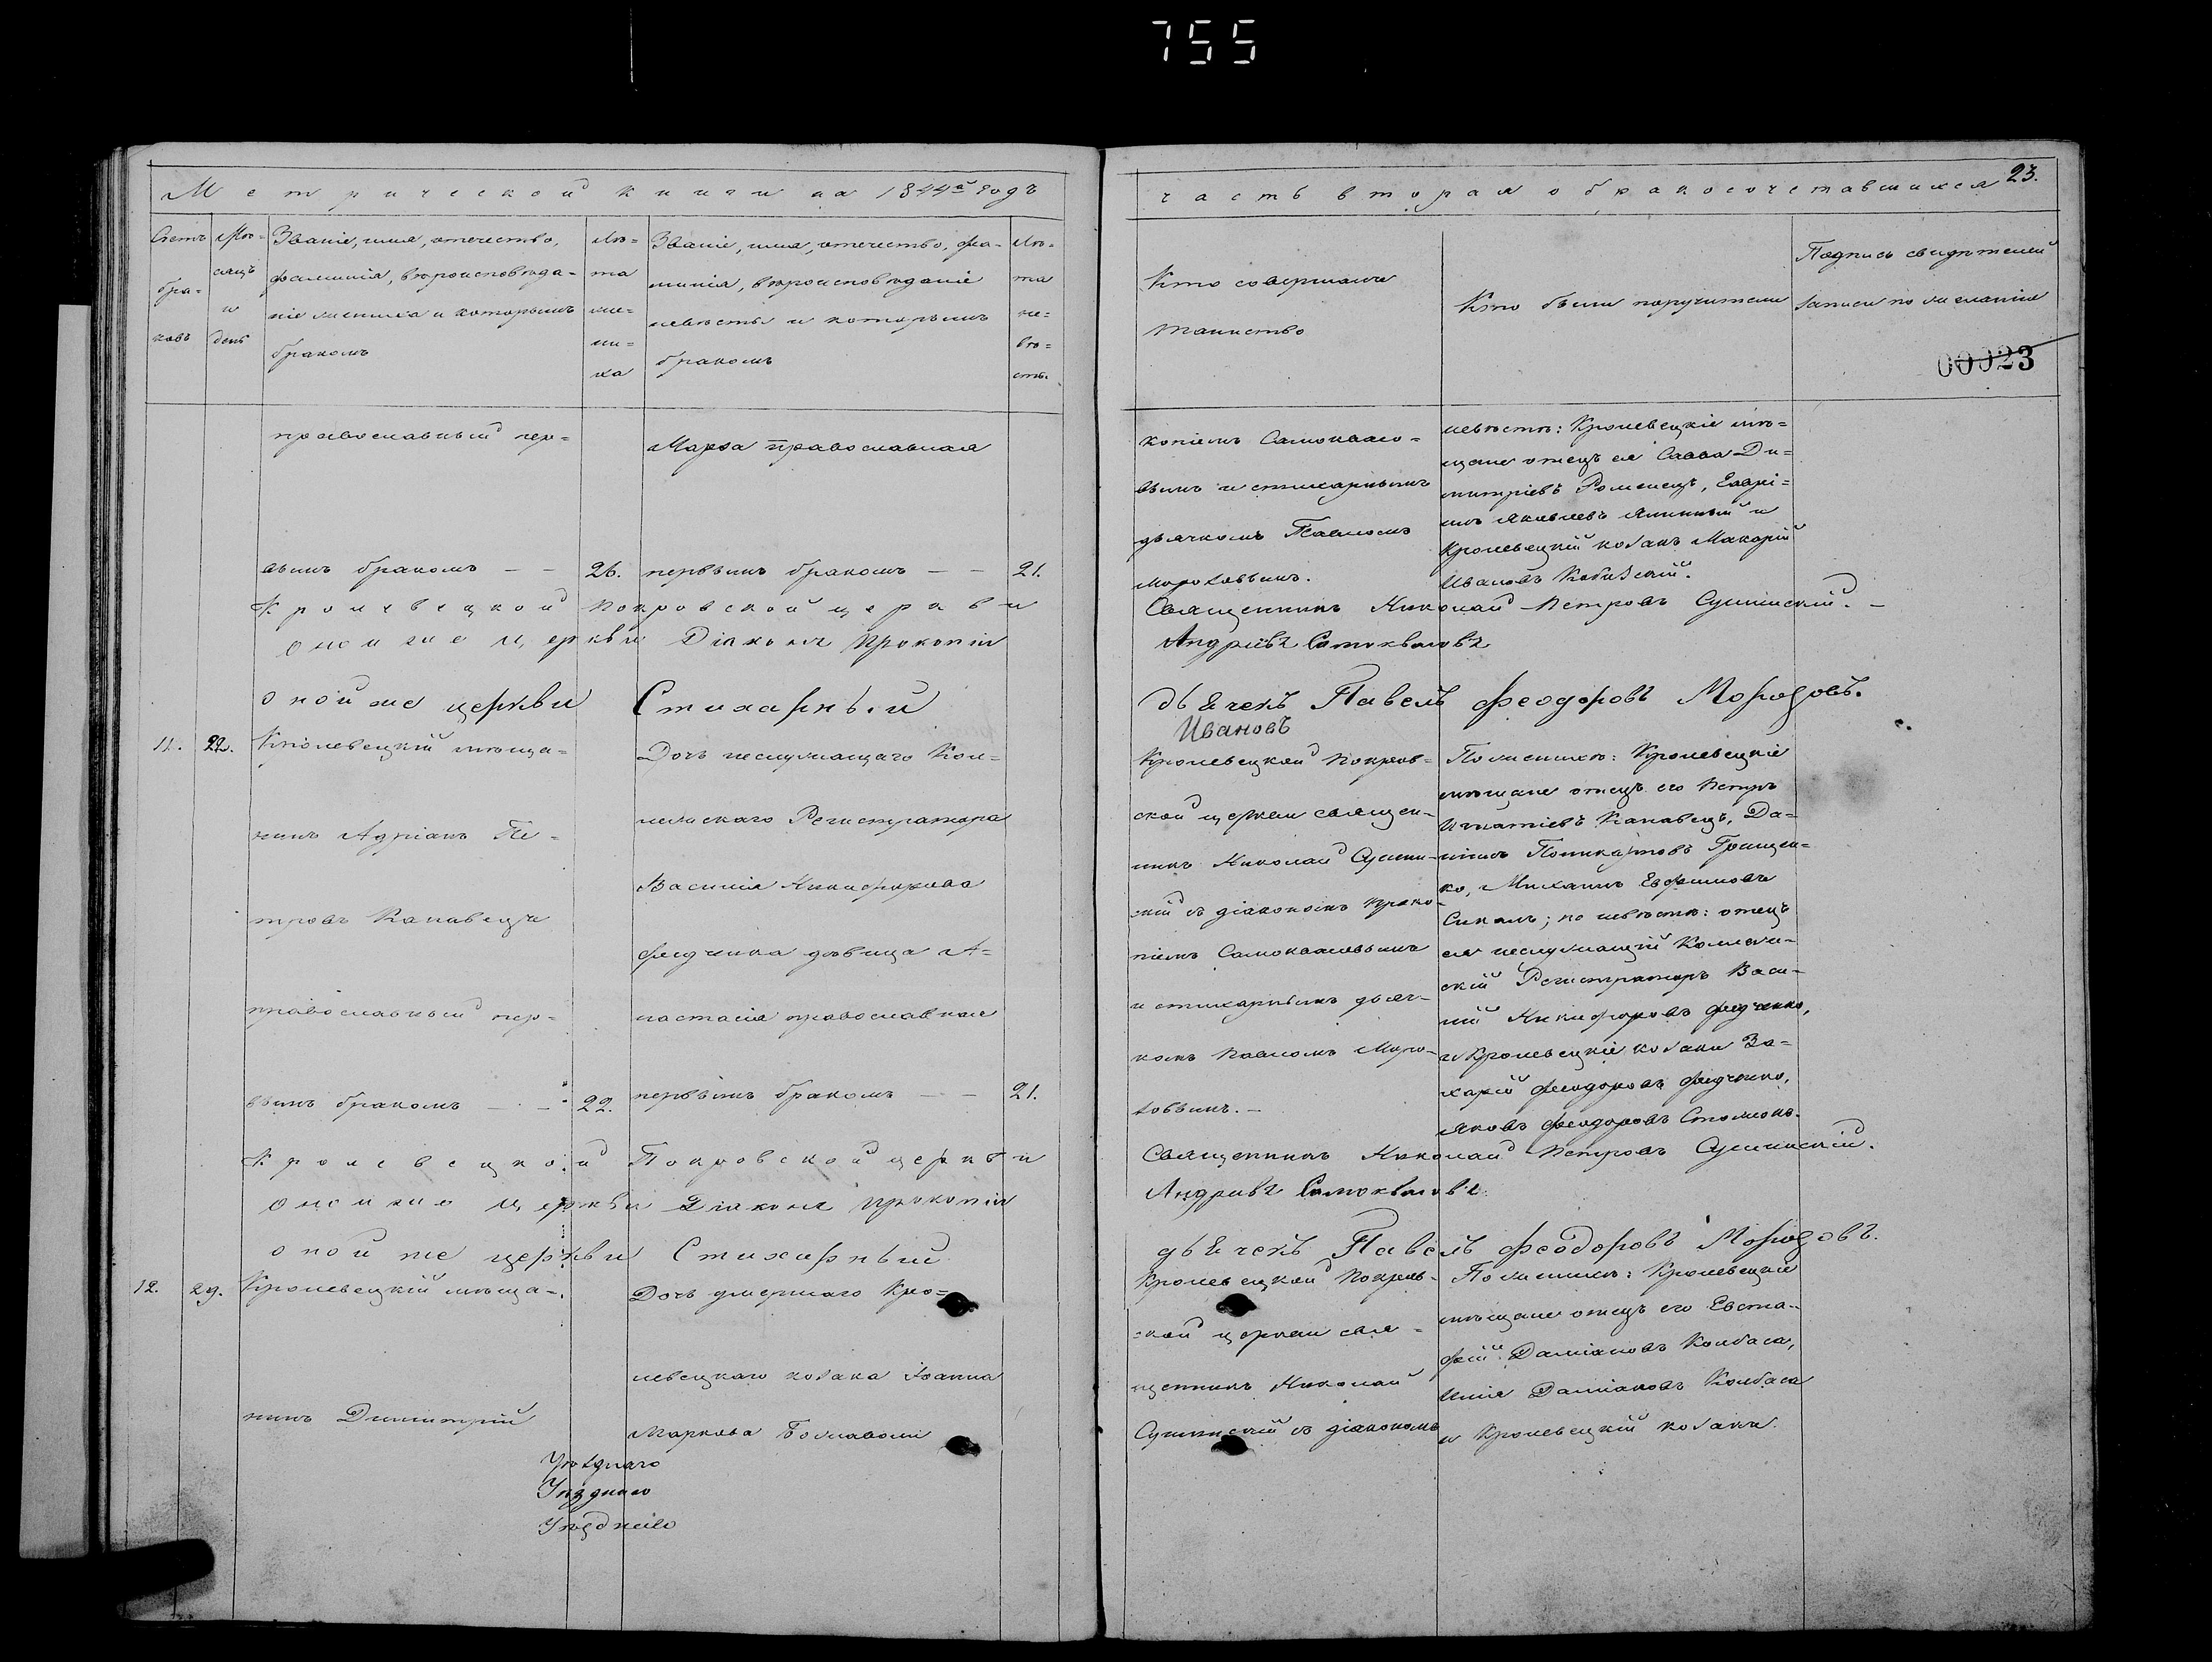 755
Метрической книги на 1844й годъ
часть вторая о бракосочетавшихся
23.
Счетъ бра-
ковъ
Мѣ-
сяцъ
и
день
Званіе, имя, отечество,
фамилія, вѣроисповѣда-
ніе жениха и которымъ
бракомъ
Лѣ=
та
же=
ни=
ха
Званіе, имя, отечество, фа-
милія, вѣроисповѣданіе
невѣсты и которымъ
бракомъ
Лѣ=
та
не=
вѣ=
сты.
Кто совершалъ
таинство
Кто были поручители
Подпись свидѣтелей
записи по желанію
00023
православный пер=
вымъ бракомъ — —
26.
Марѳа православная
первымъ бракомъ — —
21.
копіемъ Самоквало=
вымъ и стихарнымъ
дьячкомъ Павломъ
Морозовымъ.
невѣстѣ: Кролевецкіе мѣ=
щане отецъ ея Савва Ди=
митріевъ Роменецъ,
Яковлевъ и
Кролевецкій козакъ Макарій
Ивановъ
Кролевецкой Покровской церкви
Священникъ Николай Петровъ Сушинскій. —
оной же церкви Діаконъ Прокопій
Андріевъ Самокваловъ
оной же церкви Стихарный
дьячекъ Павелъ Феодоровъ Морозовъ.
Ивановъ
11.
22.
Кролевецкій мѣща=
нинъ Адріанъ Пе=
тровъ Канавецъ
православный пер=
вымъ бракомъ — —
22.
Дочь неслужащаго Кол=
лежскаго Регистратора
Василія Никифорова
Федченка дѣвица А=
настасія православная
первымъ бракомъ — —
21.
Кролевецкой Покров=
ской церкви священ-
никъ Николай Сушин-
скій съ діакономъ Проко-
піемъ Самокваловымъ
и стихарнымъ дьяч-
комъ Павломъ Моро-
зовымъ. —
По женихѣ: Кролевецкіе
мѣщане отецъ его Петръ
Игнатіевъ Канавецъ, Да=
ніилъ Поликарповъ Грищен=
ко, Михаилъ Евфимовъ
; по невѣстѣ: отецъ
ея неслужащій Коллеж-
скій Регистраторъ Васи-
лій Никифоровъ Федченко,
и Кролевецкіе козаки За=
харій Феодоровъ Федченко,
Яковъ Феодоровъ
Кролевецкой Покровской церкви
Священникъ Николай Петровъ Сушинскій.
оной же церкви Діаконъ Прокопій
Андріевъ Самокваловъ
оной же церкви Стихарный
дьячекъ Павелъ Феодоровъ Морозовъ.
12.
29.
Кролевецкій мѣща-
нинъ Димитрій
Дочь умершаго Кро=
левецкаго козака Іоанна
Маркова
Кролевецкой Покров-
ской церкви свя=
щенникъ Николай
Сушинскій съ діакономъ
По женихѣ: Кролевецкіе
мѣщане отецъ его Евста-
фій Даміановъ Колбаса,
Илія Даміановъ Колбаса
и Кролевецкій козакъ
Уѣзднаго
Уѣзднаго
Уѣзднаго